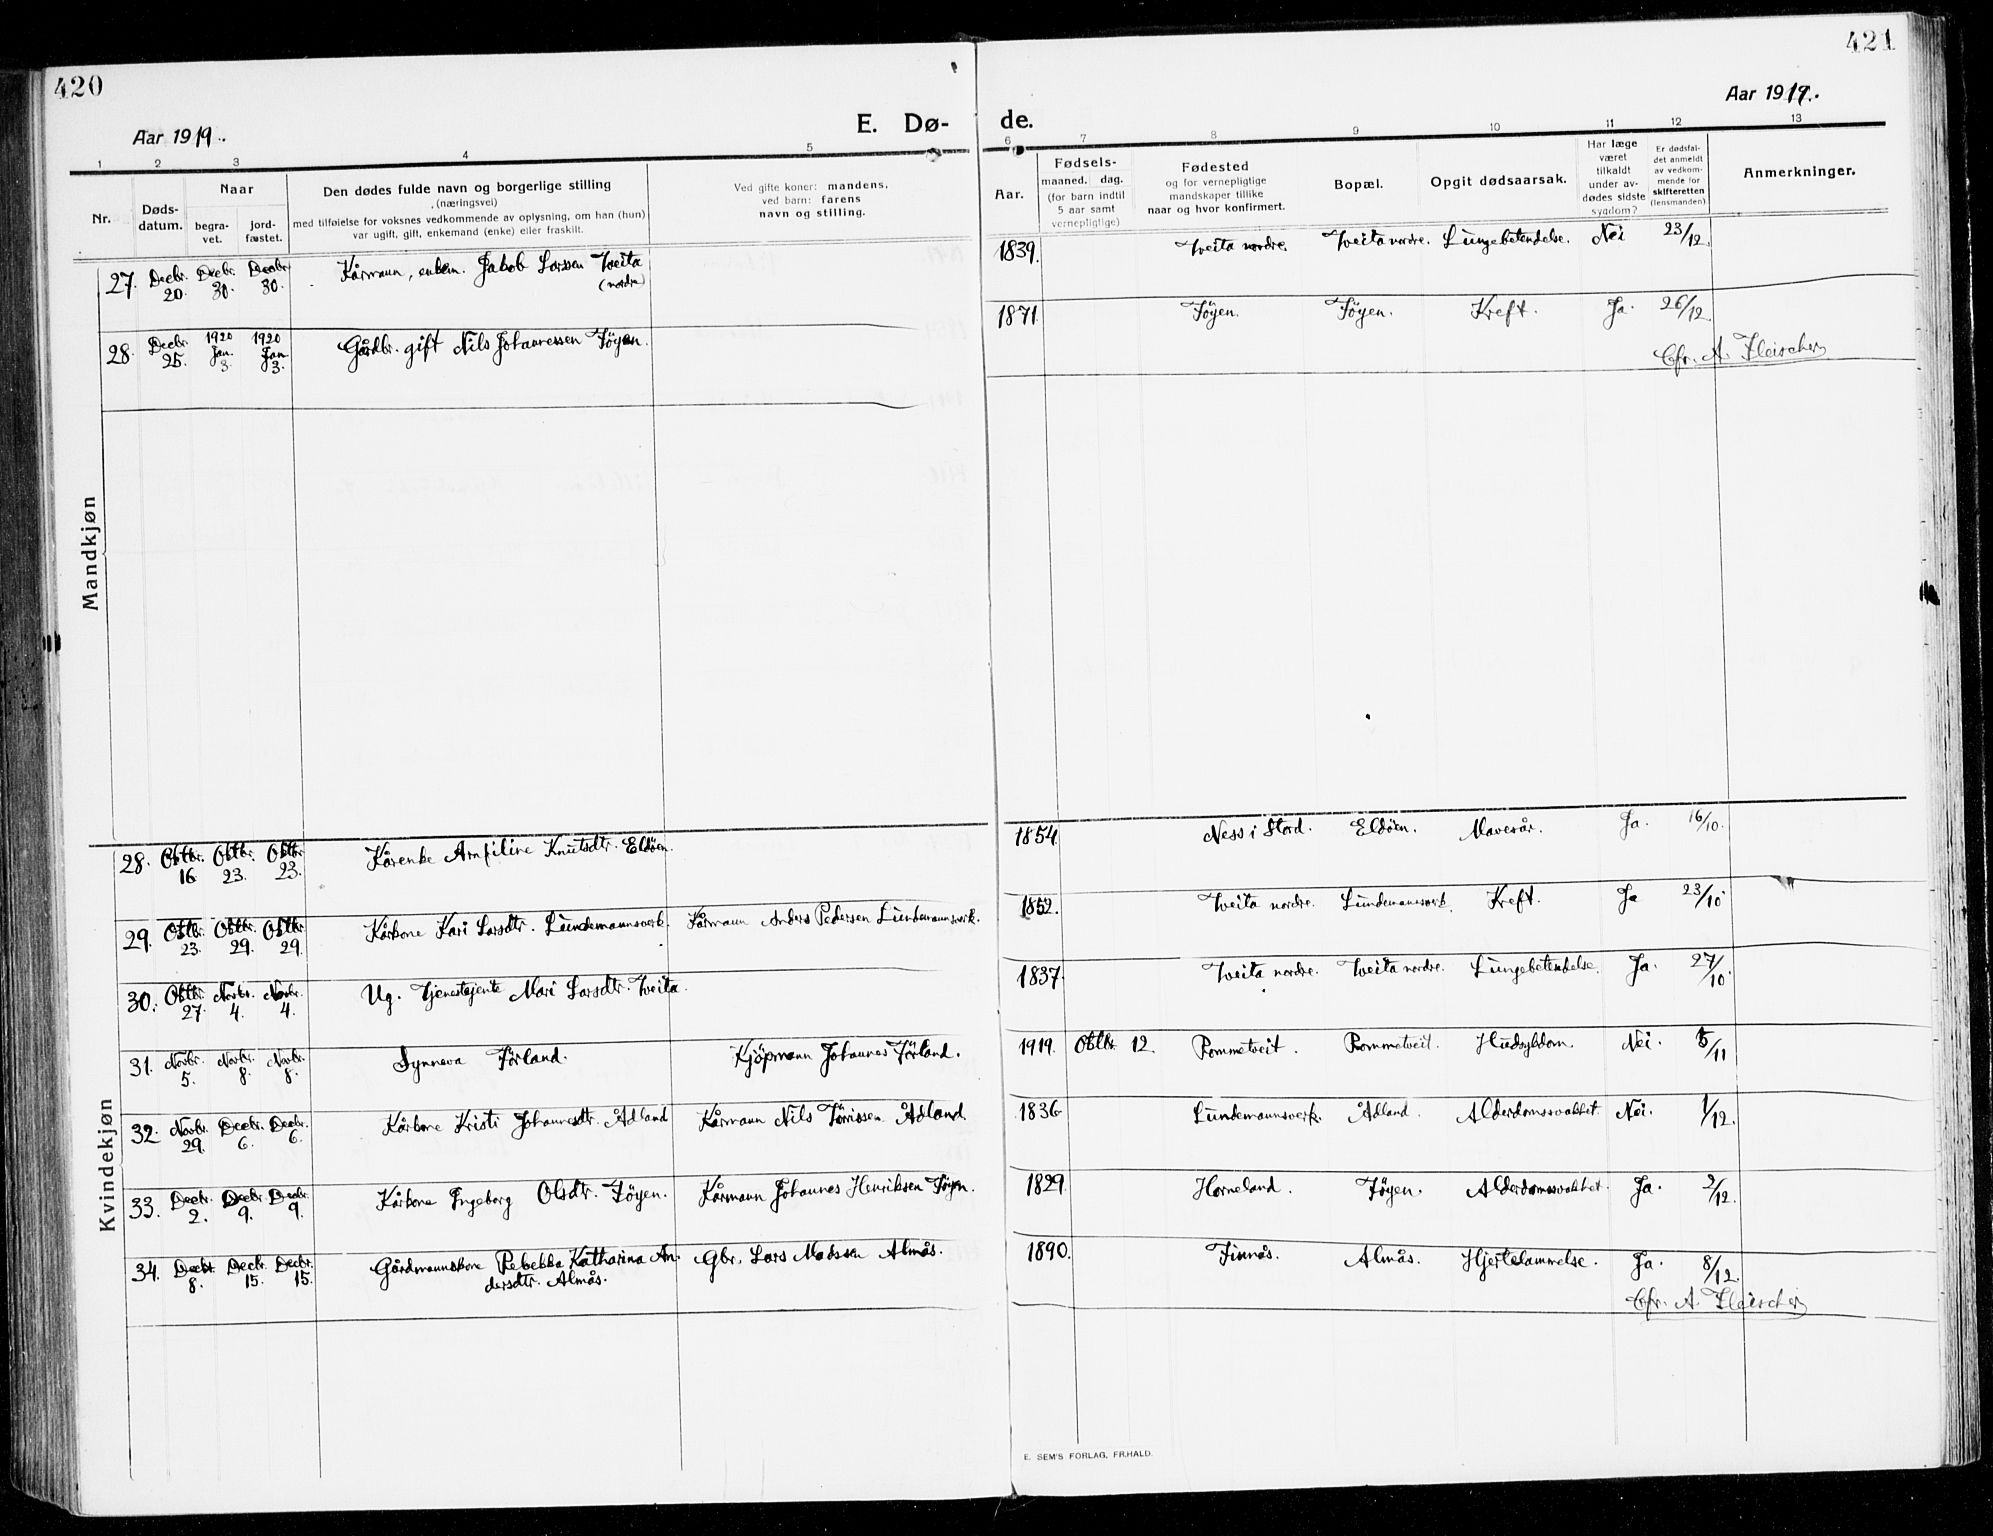 420
421
Aar 1919.
E. Dø-
de.
Aar 1919.
1 2 3 4 5 6 7 8 9 10 11 12 13
Nr.
Døds-
datum.
Naar
begra-
vet.
jord-
fæstet.
Den dødes fulde navn og borgerlige stilling
(næringsvei)
med tilføielse for voksnes vedkommende av oplysning, om han (hun)
var ugift, gift, enkemand (enke) eller fraskilt.
Ved gifte koner: mandens,
ved barn: farens
navn og stilling.
Aar.
Fødsels-
maaned. dag.
(for barn indtil
5 aar samt
vernepligtige)
Fødested
og for vernepligtige
mandskaper tillike
naar og hvor konfirmert.
Bopæl.
Opgit dødsaarsak.
Har læge
været
tilkaldt
under av-
dødes sidste
sygdom?
Er dødsfal-
det anmeldt
av vedkom-
mende for
skifteretten
(lensmanden)
Anmerkninger.
Mandkjøn
27. Decbr. 20. Decbr. 30. Decbr. 30. Kårmann, enkem. Jakob Larssen Tveita (nordre) 1839. Tveita nordre. Tveita nordre. Lungebetendelse. Nei 23/12.
28. Decbr. 25. 1920 Jan. 3. 1920 Jan. 3. Gårdbr. gift Nils Johannessen Töyen. 1871. Töyen. Töyen. Kreft. Ja. 26/12.
Cfr. A. Fleischer
Kvindekjøn
28. Oktbr. 16. Oktbr. 23. Oktbr. 23. Kårenke Knutsdtr. Eldöen. 1854. Ness i Stord. Eldöen. Mavesår. Ja. 16/10.
29. Oktbr. 23. Oktbr. 29. Oktbr. 29. Kårkone Kari Larsdtr. Lundemannsverk. Kårmann Anders Pedersen Lundemannsverk. 1852. Tveita nordre. Lundemannsverk. Kreft. Ja 23/10.
30. Oktbr. 27. Novbr. 4. Novbr. 4. Ug. Tjenestejente Mari Larsdtr. Tveita. 1837. Tveita nordre. Tveita nordre. Lungebetendelse. Ja. 27/10.
31. Novbr. 5. Novbr. 8. Novbr. 8. Synneva Förland. Kjöpmann Johannes Förland. 1919. Oktbr. 12. Rommetveit. Rommetveit. Hudsykdom. Nei. 5/11
32. Novbr. 29. Decbr. 6. Decbr. 6. Kårkone Kristi Johannesdtr. Ådland Kårmann Nils Törrissen Ådland. 1836 Lundemannsverk. Ådland. Alderdomssvakhet Nei. 1/12.
33. Decbr. 2. Decbr. 9. Decbr. 9. Kårkone Ingeborg Olsdtr. Töyen. Kårmann Johannes Henriksen Töyen. 1829. Horneland. Töyen. Alderdomssvakhet. Ja. 2/12.
34. Decbr. 8. Decbr. 15. Decbr. 15. Gårdmannskone Rebekka Katharina An-
dersdtr. Almås. Gbr. Lars Madssen Almås. 1890. Finnås. Almås. Hjertelammelse. Ja. 8/12.
Cfr. A. Fleischer
E. SEM'S FORLAG, FR.HALD.